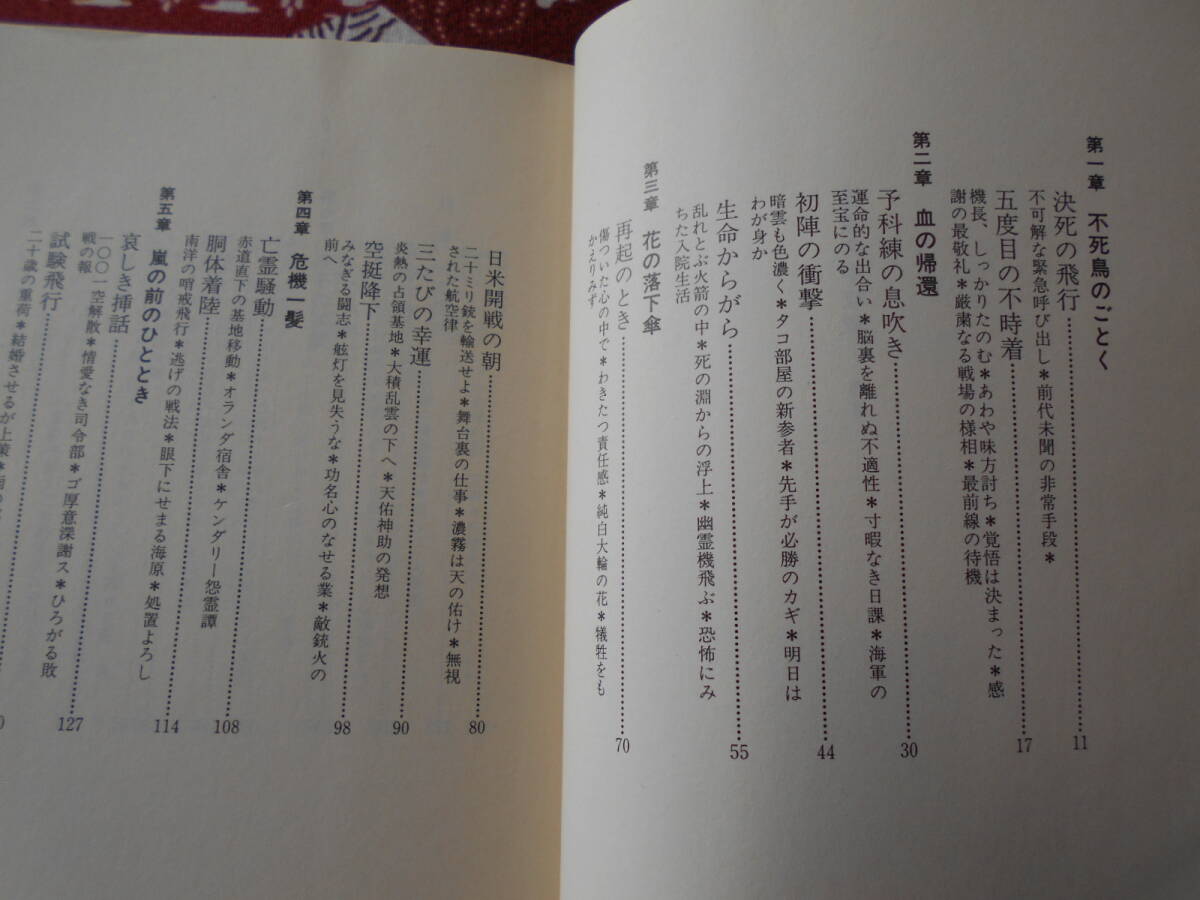 第一章 不死鳥のごとく
決死の飛行……11
不可解な緊急呼び出し＊前代未聞の非常手段＊
五度目の不時着……17
機長、しっかりたのむ＊あわや味方討ち＊覚悟は決まった＊感
謝の最敬礼＊厳粛なる戦場の様相＊最前線の待機
第二章 血の帰還
予科練の息吹き……30
運命的な出合い＊脳裏を離れぬ不適性＊寸暇なき日課＊海軍の
至宝にのる
初陣の衝撃……44
暗雲も色濃く＊タコ部屋の新参者＊先手が必勝のカギ＊明日は
わが身か
生命からがら……55
乱れとぶ火箭の中＊死の淵からの浮上＊幽霊機飛ぶ＊恐怖にみ
ちた入院生活
第三章 花の落下傘
再起のとき……70
傷ついた心の中で＊わきたつ責任感＊純白大輪の花＊犠牲をも
かえりみず
日米開戦の朝……80
二十ミリ銃を輸送せよ＊舞台裏の仕事＊濃霧は天の佑け＊無視
された航空律
三たびの幸運……90
炎熱の占領基地＊大積乱雲の下へ＊天佑神助の発想
空挺降下……98
みなぎる闘志＊舷灯を見失うな＊功名心のなせる業＊敵銃火の
前へ
第四章 危機一髪
亡霊騒動……108
赤道直下の基地移動＊オランダ宿舎＊ケンダリー怨霊譚
胴体着陸……114
南洋の哨戒飛行＊逃げの戦法＊眼下にせまる海原＊処置よろし
第五章 嵐の前のひととき
哀しき挿話……127
一〇〇一空解散＊情愛なき司令部＊ゴ厚意深謝ス＊ひろがる敗
戦の報
試験飛行……0
二十歳の重荷＊結婚させるが上策＊